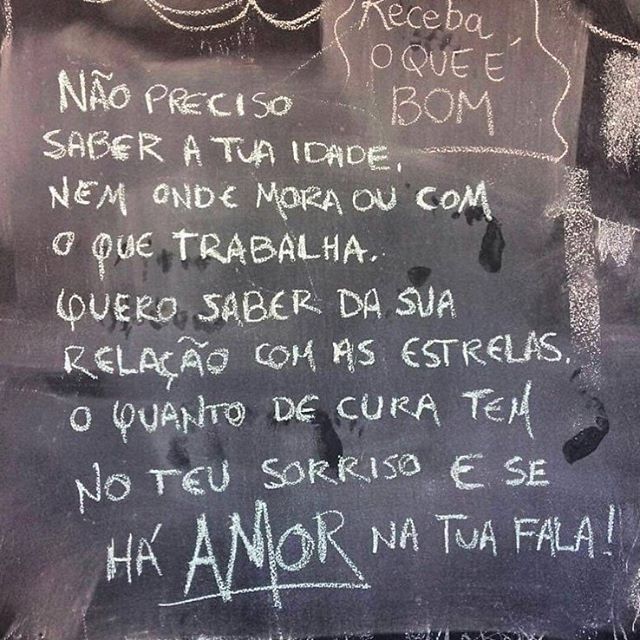 Receba
O QUE É
BOM
NÃO PRECISO
SABER A TUA IDADE,
NEM ONDE MORA OU COM
O QUE TRABALHA.
QUERO SABER DA SUA
RELAÇÃO COM AS ESTRELAS.
O QUANTO DE CURA TEM
NO TEU SORRISO E SE
HÁ AMOR NA TUA FALA!